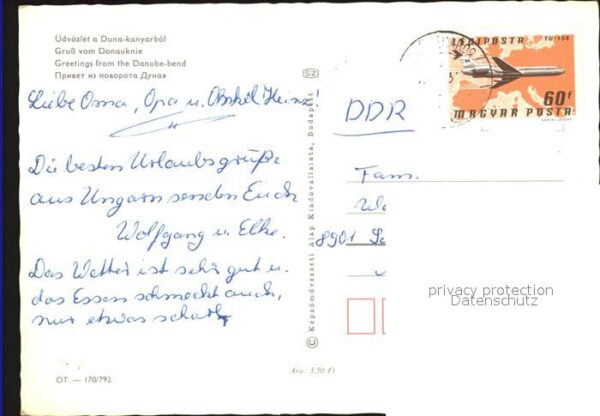 Üdvözlet a Duna-kanyarból
Gruß vom Donauknie
Greetings from the Danube-bend
Привет из поворота Дуная
Liebe Oma, Opa u. Onkel Heinz!
Die besten Urlaubsgrüße
aus Ungarn senden Euch
Wolfgang u. Elke.
Das Wetter ist sehr gut u.
das Essen schmeckt auch,
nur etwas scharf
OT. — 170/792
SZ
© Képzőművészeti Alap Kiadóvállalata, Budapest
Ára: 3,50 Ft
LÉGIPOSTA TU-154
60f
MAGYAR POSTA
DDR
Fam.
8901
privacy protection
Datenschutz